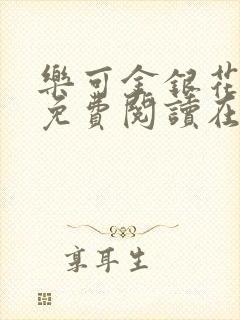 樂可金銀花
免費閱讀在
享耳生